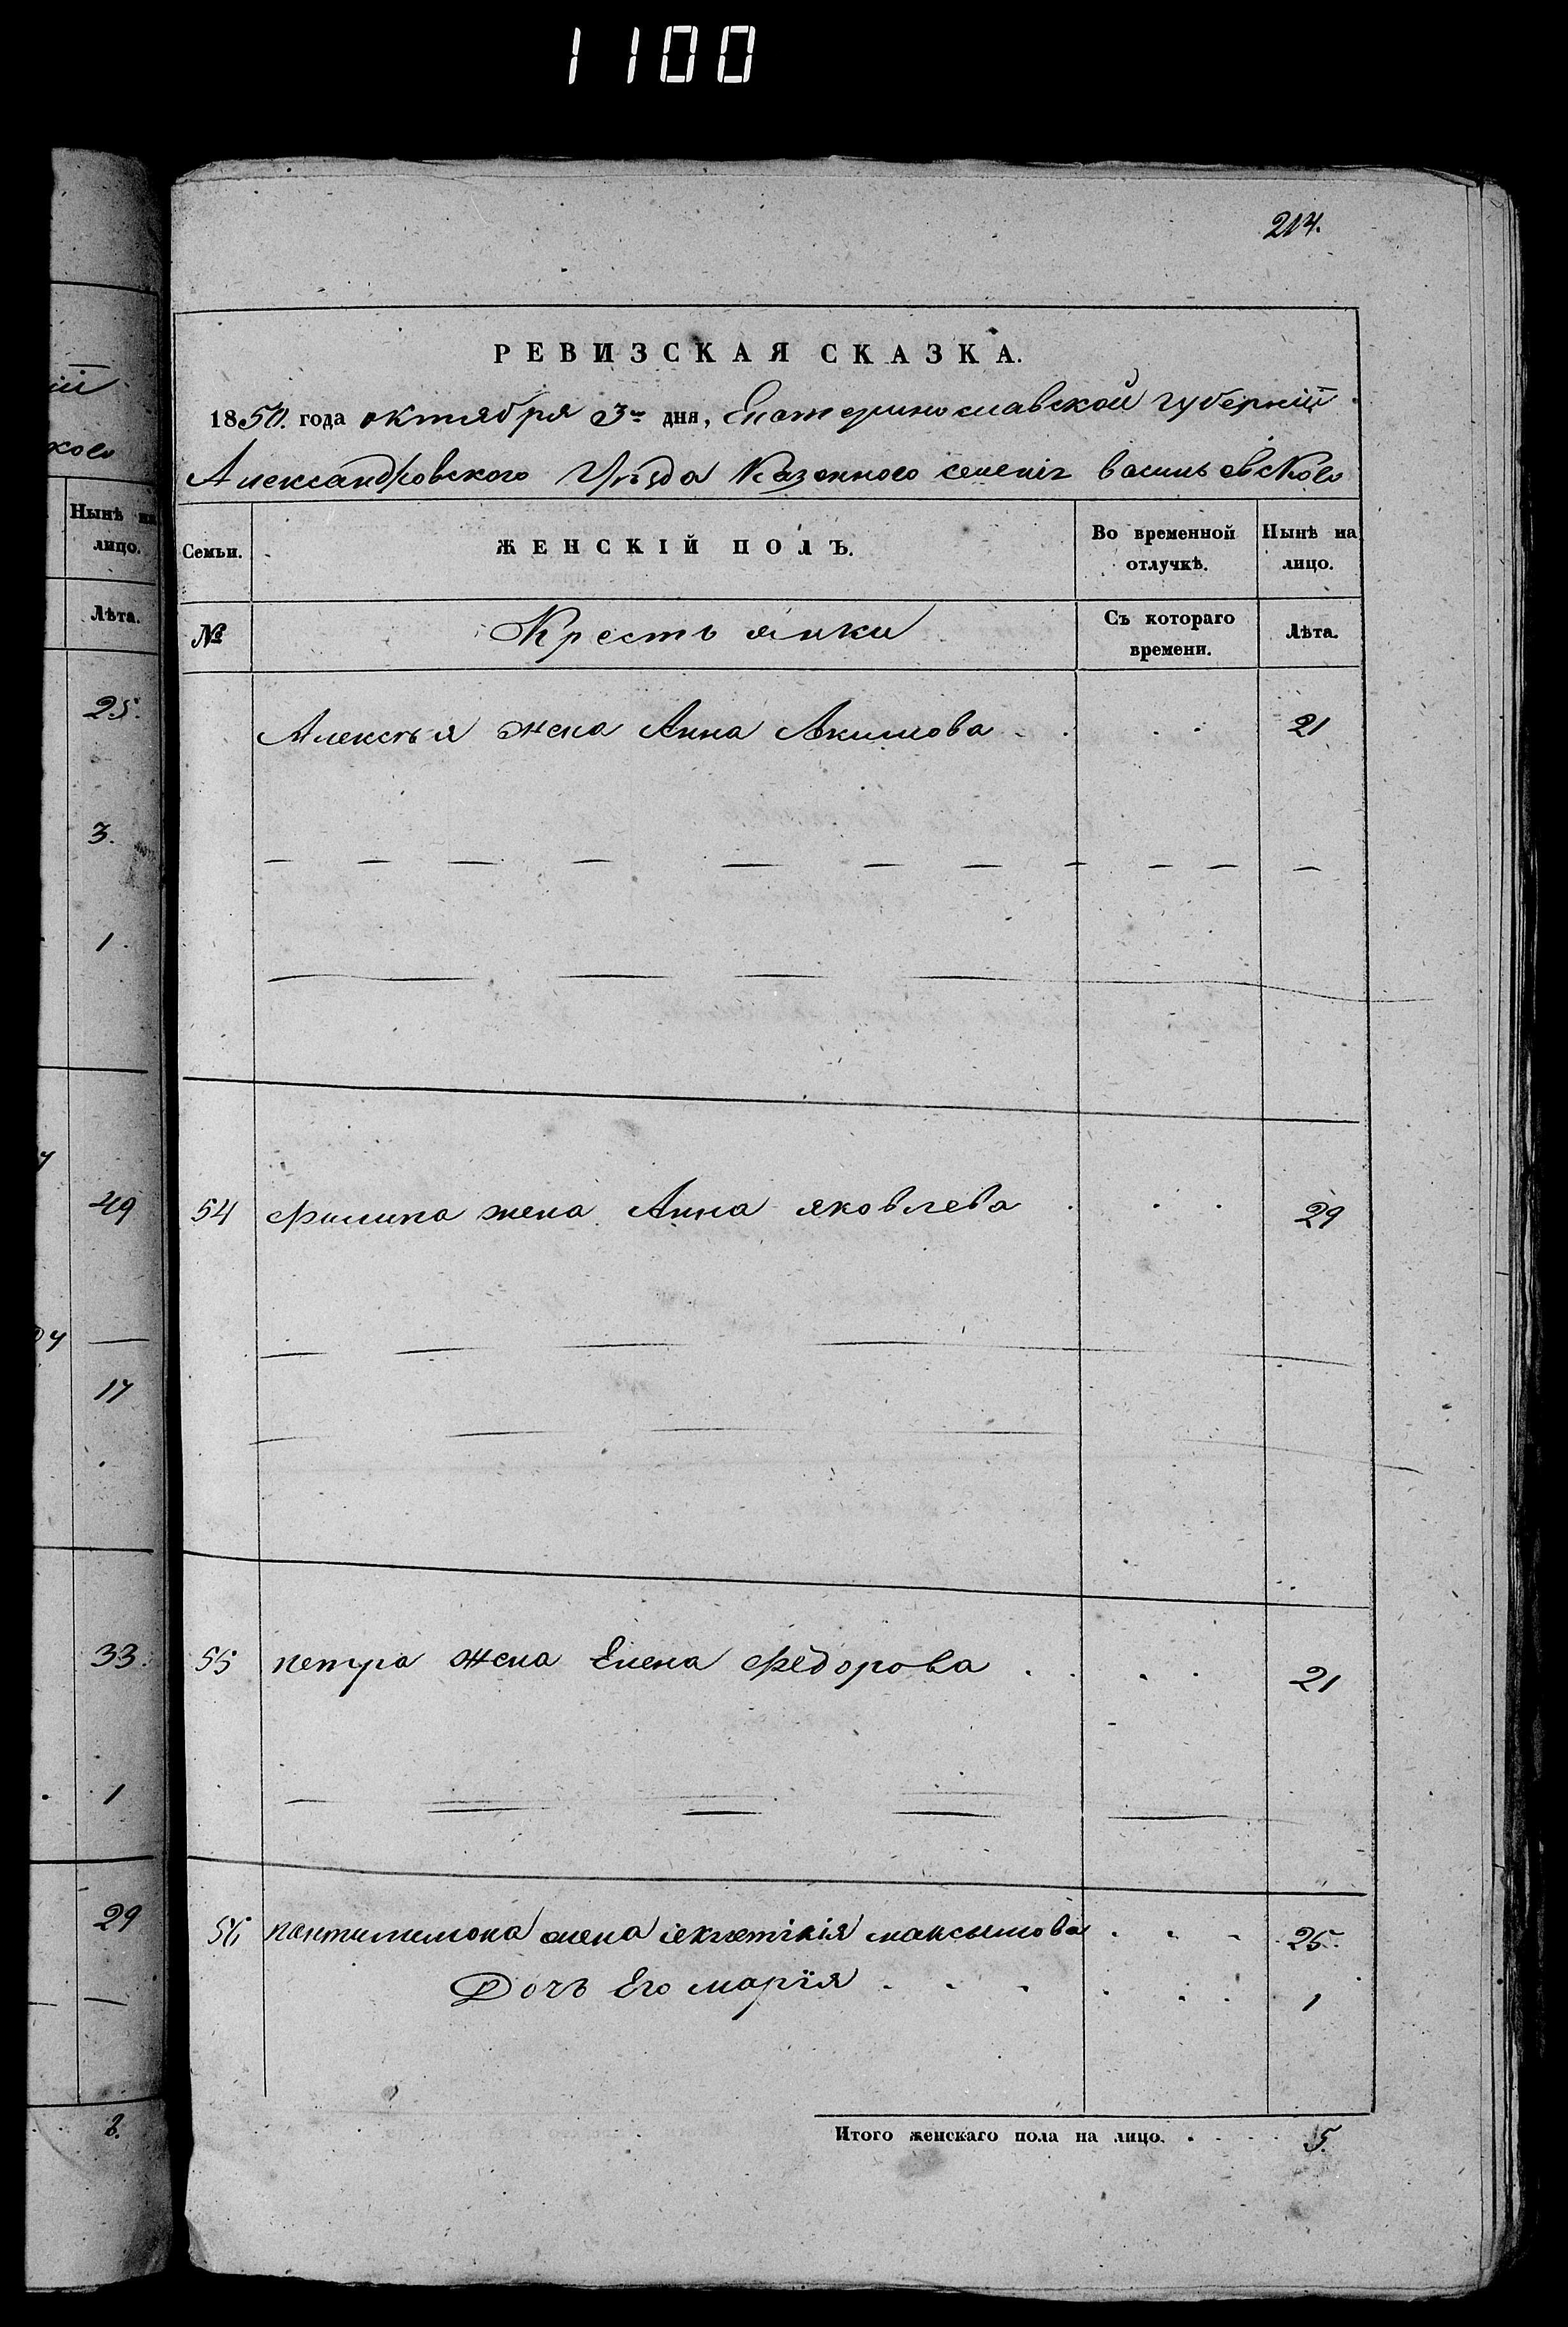 1100
214.
РЕВИЗСКАЯ СКАЗКА.
1850. года октября 3го дня, Екатеринославской губерніи
Александровского Уѣзда Казенного селенія васильевского
Семьи. ЖЕНСКІЙ ПОЛЪ. Во временной отлучкѣ. Нынѣ на лицо.
№ Крестьянки Съ котораго времени. Лѣта.
Алексѣя жена Анна Акимова 21
54 Филипа жена Анна яковлева 29
55 петра жена Елена Федорова 21
56 пантилимона жена максымова 25.
Дочь Его марія 1
Итого женскаго пола на лицо. 5.
Нынѣ на
лицо.
Лѣта.
25.
3.
1
49
17
33.
1
29
8.